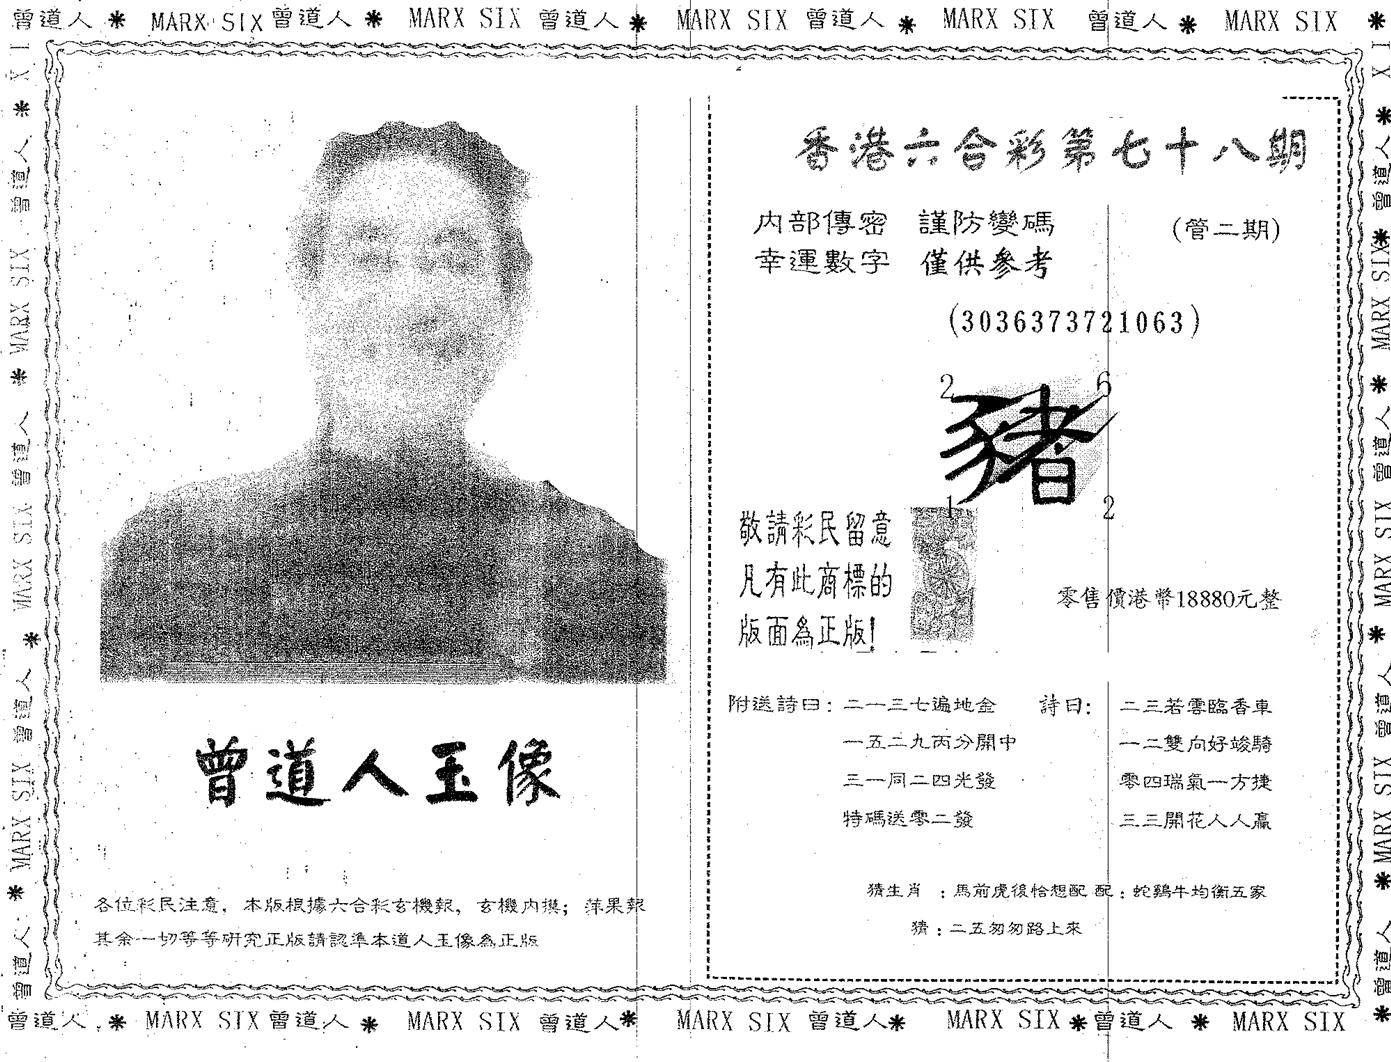 曾道人 * MARX SIX 曾道人 * MARX SIX 曾道人 * MARX SIX 曾道人 * MARX SIX 曾道人 * MARX SIX *
香港六合彩第七十八期
内部傳密 謹防變碼 (管二期)
幸運數字 僅供參考
(3036373721063)
2 6
豬
1 2
敬請彩民留意
凡有此商標的
版面為正版!
零售價港幣18880元整
附送詩曰:二一三七遍地金
一五二九丙分開中
三一同二四光發
特碼送零二發
詩曰: 二三若雲臨香車
一二雙向好竣騎
零四瑞氣一方捷
三三開花人人贏
猜生肖 :馬前虎後恰想配 配:蛇鷄牛均衡五家
猜:二五匆匆路上來
曾道人玉像
各位彩民注意,本版根據六合彩玄機報,玄機内摸;苹果報
其余一切等等研究正版請認準本道人玉像為正版
曾道人 * MARX SIX 曾道人 * MARX SIX 曾道人 * MARX SIX 曾道人 * MARX SIX * 曾道人 * MARX SIX
曾道人 * MARX SIX 曾道人 * MARX SIX 曾道人 * MARX SIX 曾道人 * X I
曾道人 * MARX SIX 曾道人 * MARX SIX 曾道人 * MARX SIX * 曾道人 * X I